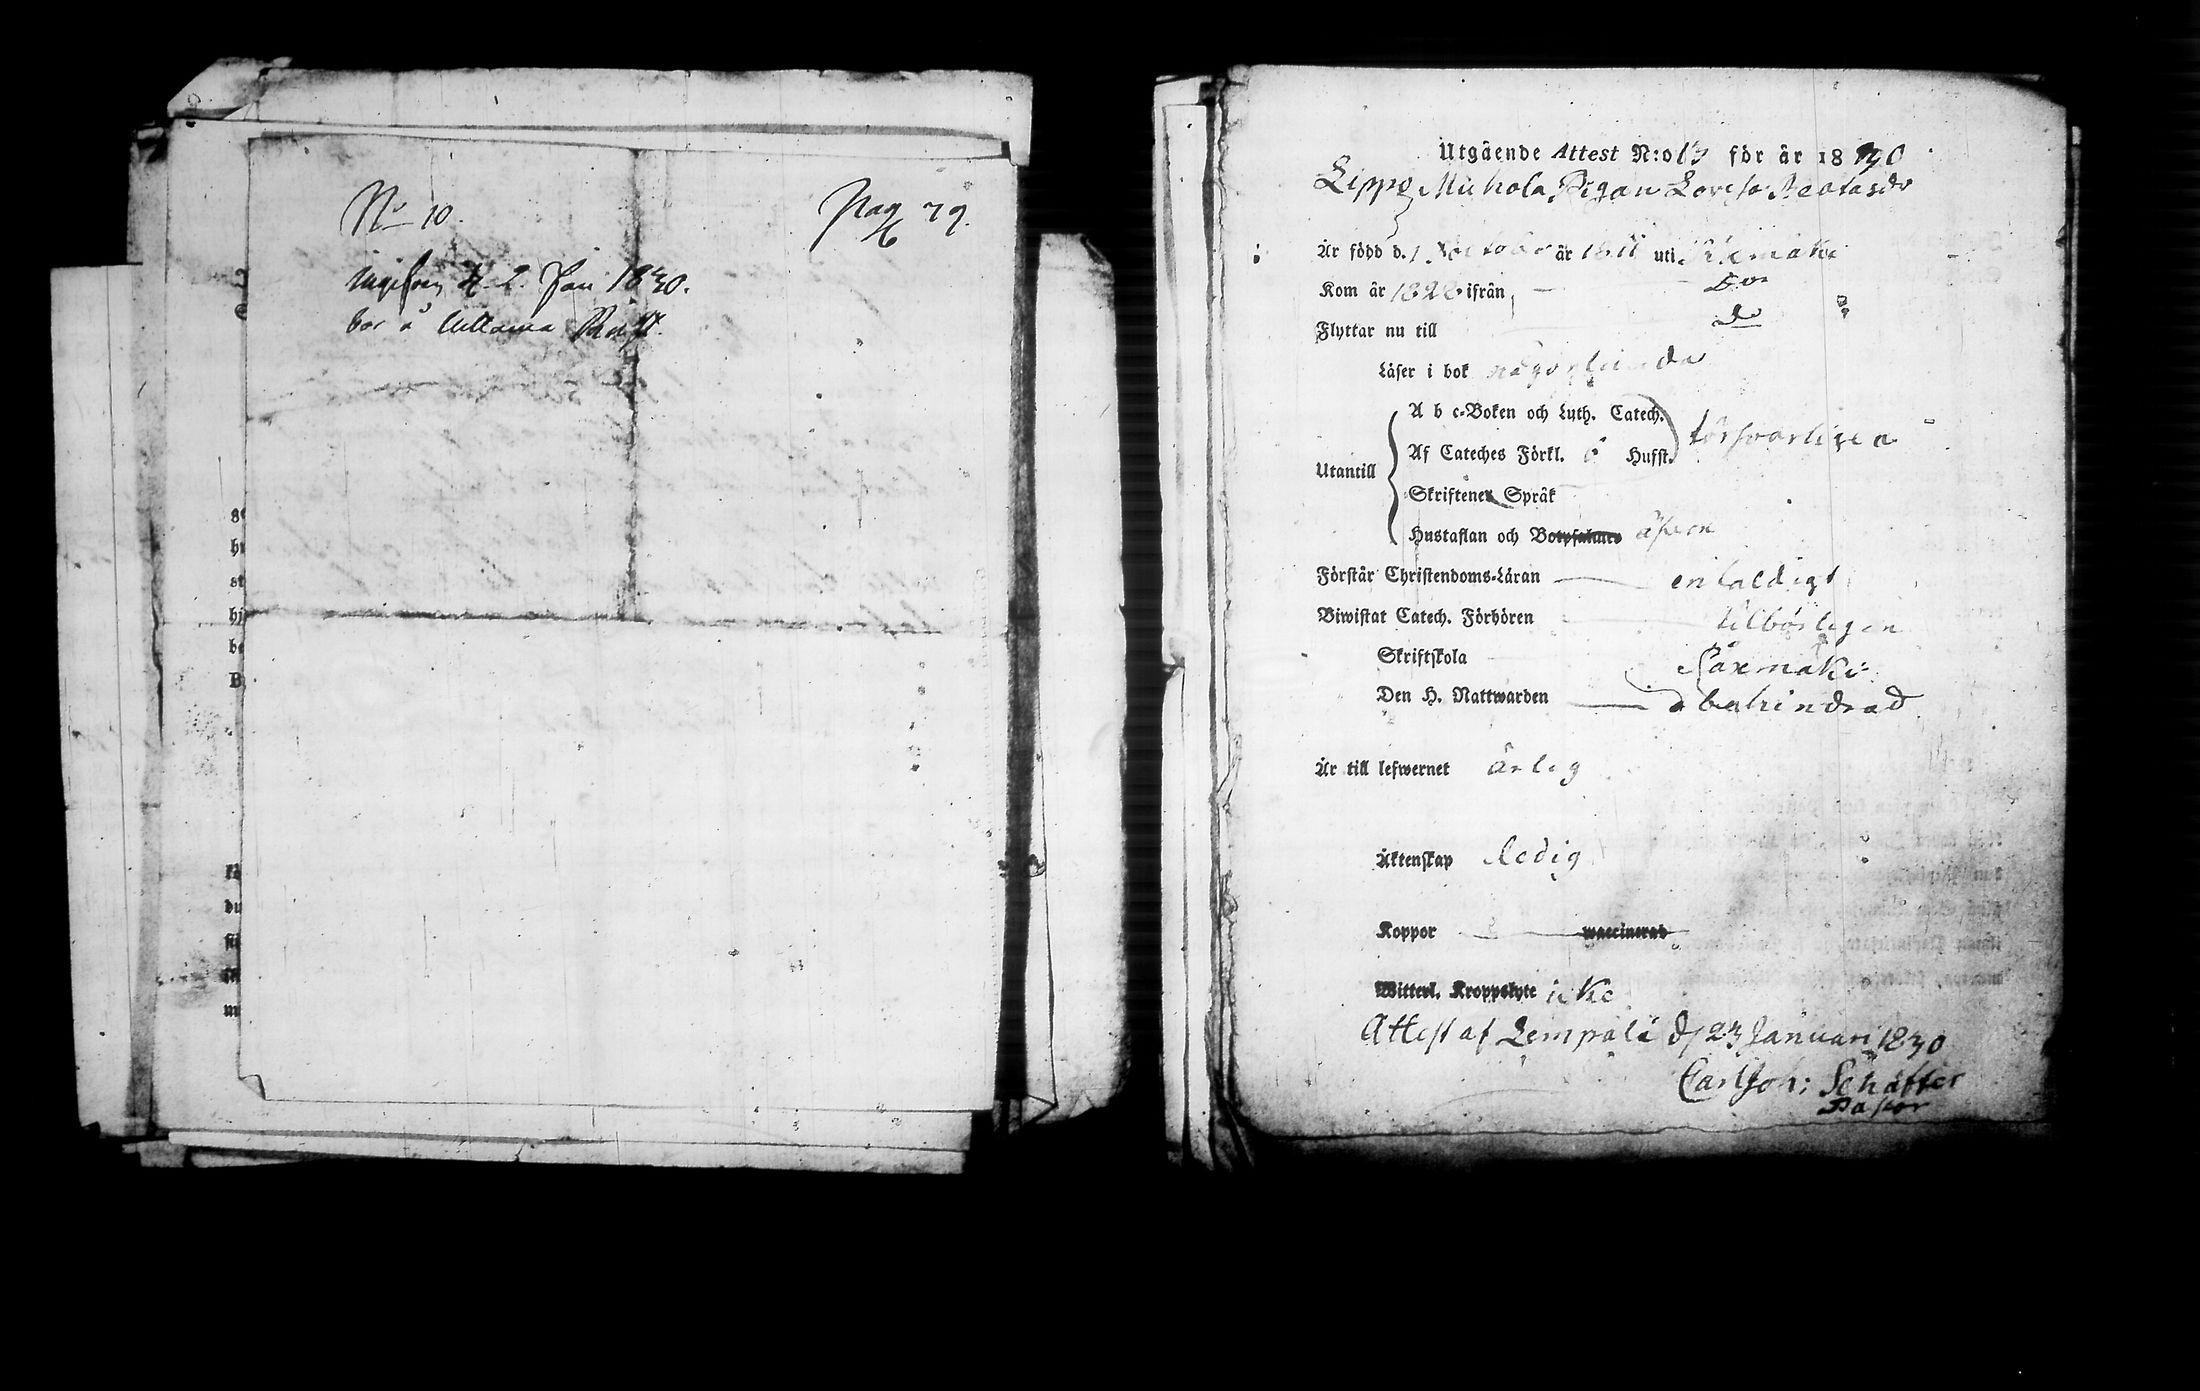 No 10.
Pag 79.
d. 2 Jan 1830.
bor å Ullama
Utgående Attest N:o 13 för år 1830
Lippo Muhola Pigan Lovisa Beatasdr
Är född d. 1 October år 1811 uti Säxmäki
Kom år 1828 ifrån — Do
Flyttar nu till do
Läser i bok någorlunda
A b c-Boken och Luth. Catech.
försvarligen
Af Cateches Förkl. 6 Hufst.
Utantill
Skriftenes Språk
Hustaflan och Botpsalmer äfven
Förstår Christendoms-Läran — enfaldigt
Biwistat Catech. Förhören tilbörligen
Skriftskola Säxmäki
Den H. Nattwarden — obehindrad
Är till lefwernet ärlig
Äktenskap ledig
Koppor waccinerad
Witterl. Kroppslyte icke
Attest af Lempälä d. 23 Januari 1830
Carl Joh: Schäffer
Pastor